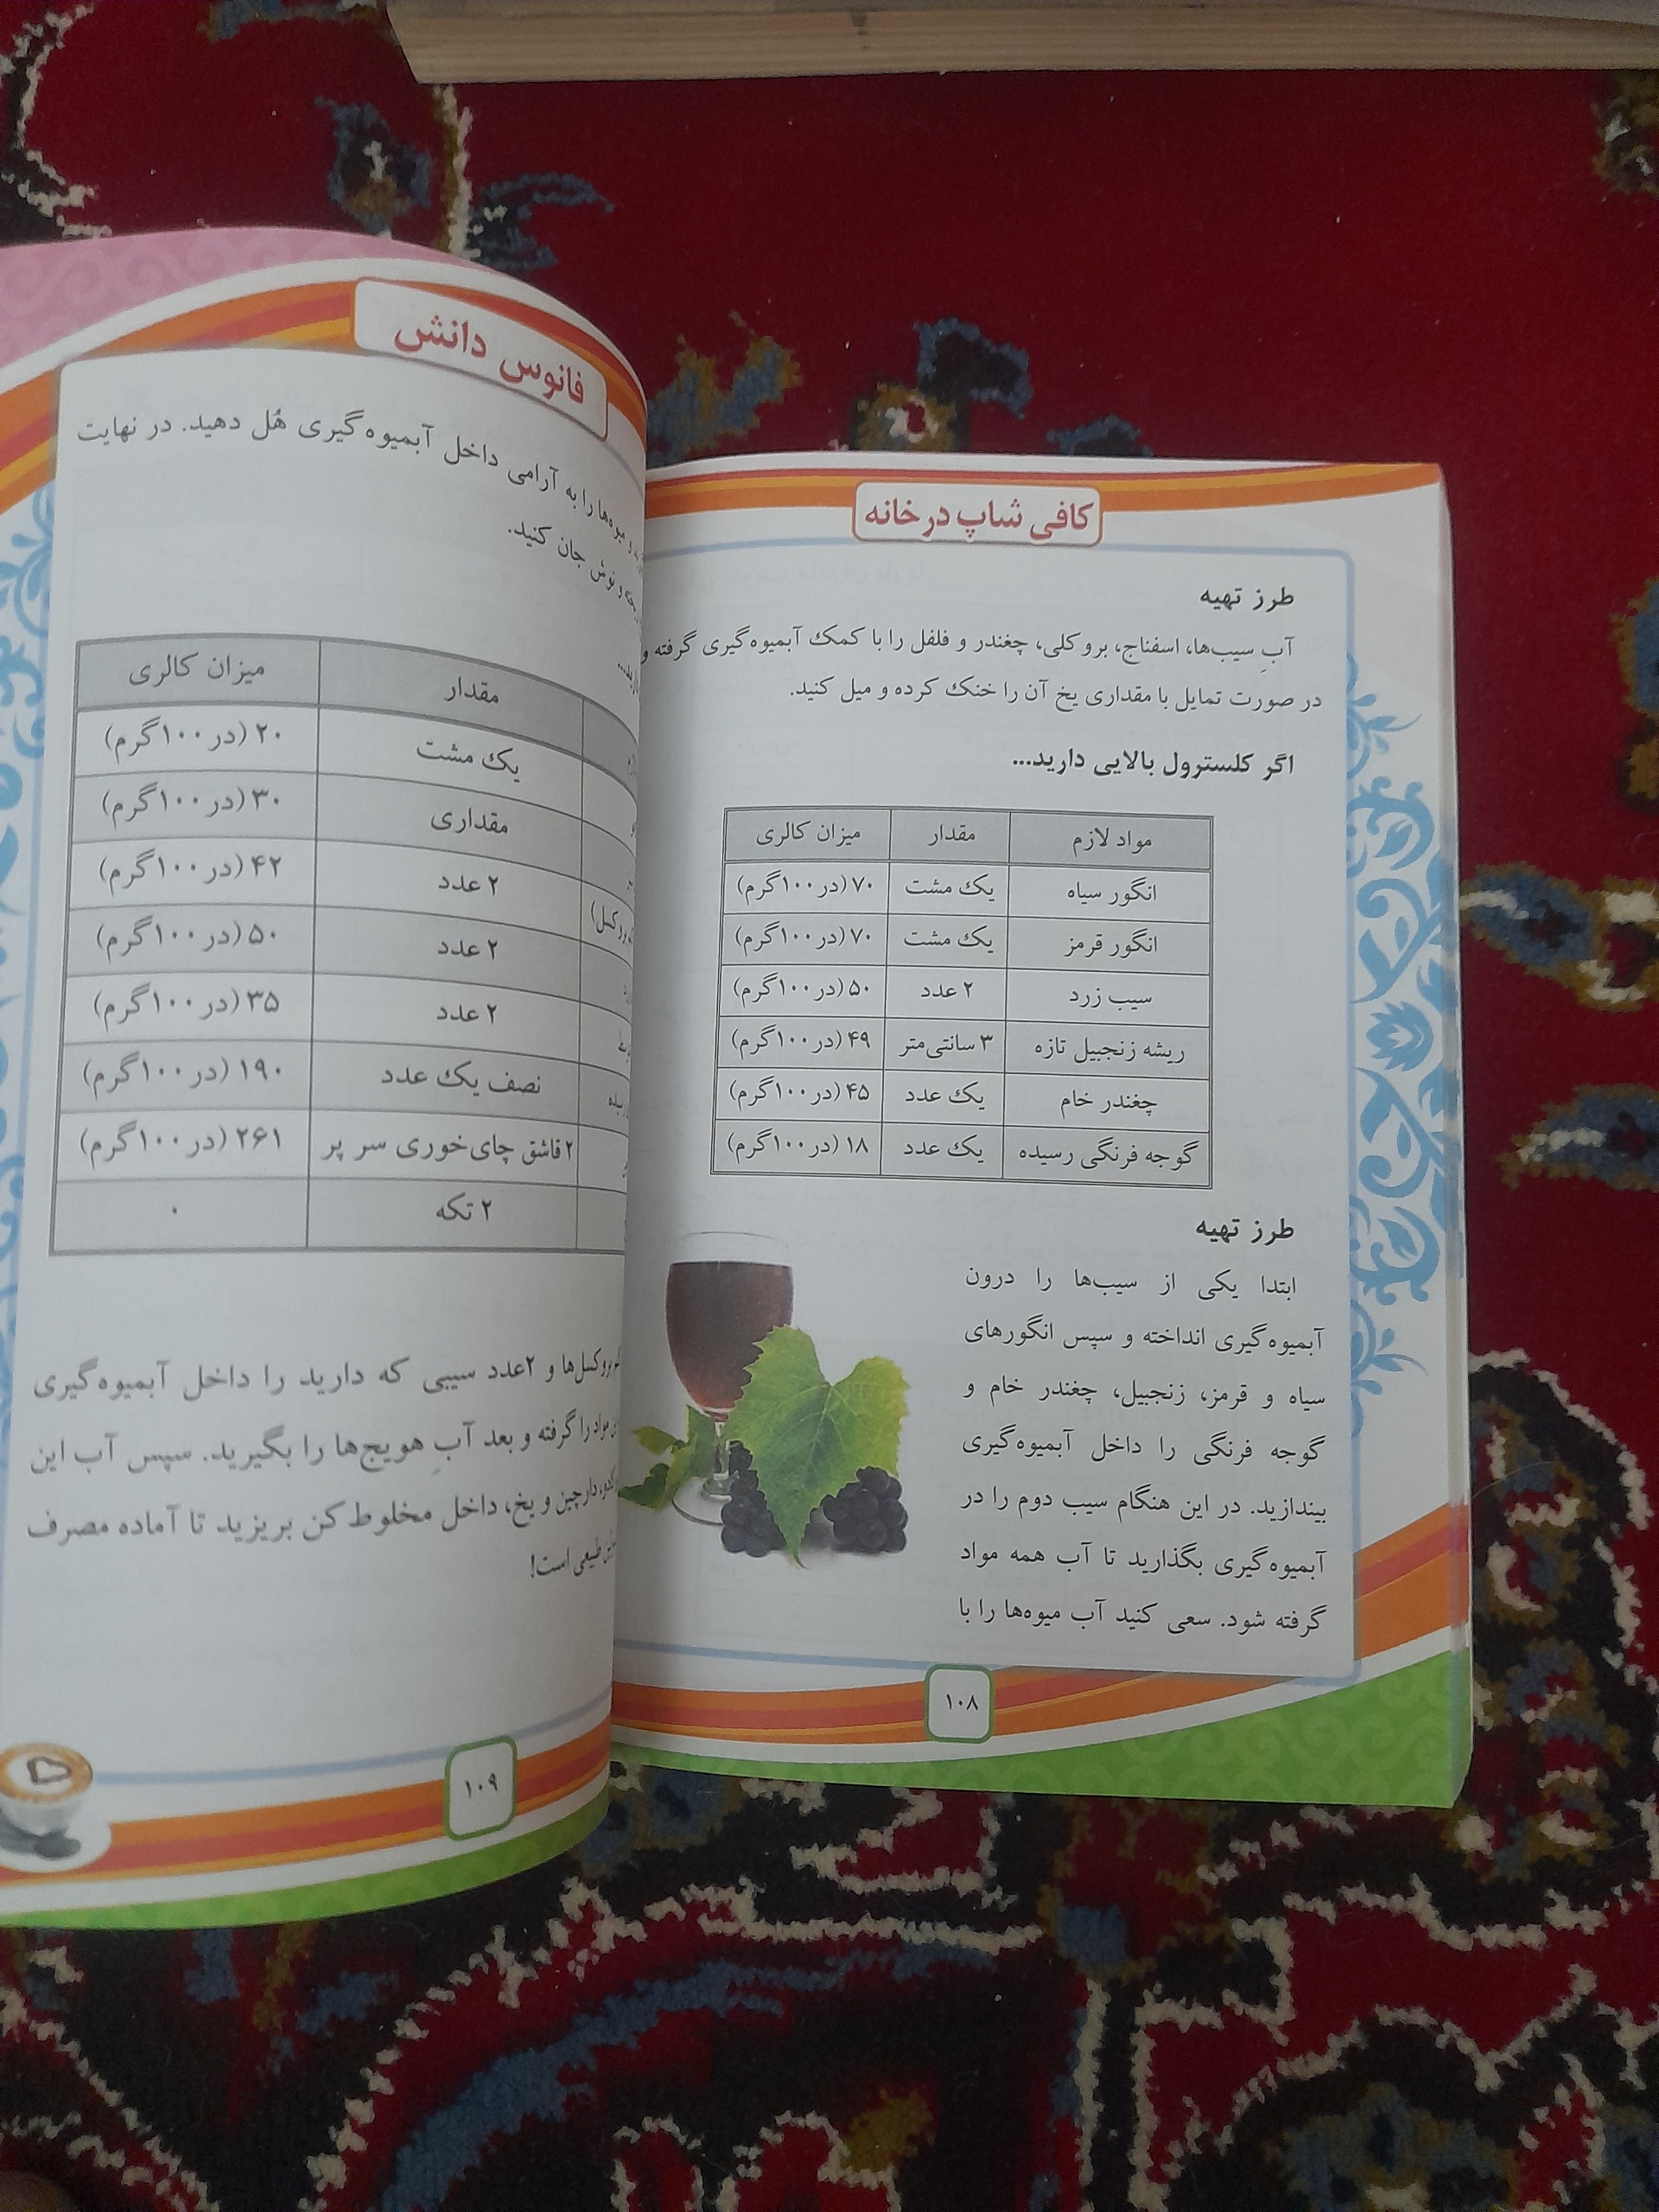 کافی شاپ در خانه
طرز تهیه
آبِ سیب‌ها، اسفناج، بروکلی، چغندر و فلفل را با کمک آبمیوه‌گیری گرفته و
در صورت تمایل با مقداری یخ آن را خنک کرده و میل کنید.
اگر کلسترول بالایی دارید...
مواد لازم مقدار میزان کالری
انگور سیاه یک مشت ۷۰ (در ۱۰۰گرم)
انگور قرمز یک مشت ۷۰ (در ۱۰۰گرم)
سیب زرد ۲ عدد ۵۰ (در ۱۰۰گرم)
ریشه زنجبیل تازه ۳ سانتی‌متر ۴۹ (در ۱۰۰گرم)
چغندر خام یک عدد ۴۵ (در ۱۰۰گرم)
گوجه فرنگی رسیده یک عدد ۱۸ (در ۱۰۰گرم)
طرز تهیه
ابتدا یکی از سیب‌ها را درون
آبمیوه‌گیری انداخته و سپس انگورهای
سیاه و قرمز، زنجبیل، چغندر خام و
گوجه فرنگی را داخل آبمیوه‌گیری
بیندازید. در این هنگام سیب دوم را در
آبمیوه‌گیری بگذارید تا آب همه مواد
گرفته شود. سعی کنید آب میوه‌ها را با
۱۰۸
فانوس دانش
و میوه‌ها را به آرامی داخل آبمیوه‌گیری هُل دهید. در نهایت
و نوش جان کنید.
مقدار میزان کالری
یک مشت ۲۰ (در ۱۰۰گرم)
مقداری ۳۰ (در ۱۰۰گرم)
۲ عدد ۴۲ (در ۱۰۰گرم)
۲ عدد ۵۰ (در ۱۰۰گرم)
۲ عدد ۳۵ (در ۱۰۰گرم)
نصف یک عدد ۱۹۰ (در ۱۰۰گرم)
۲ قاشق چای‌خوری سر پر ۲۶۱ (در ۱۰۰گرم)
۲ تکه ۰
بروکسل‌ها و ۲عدد سیبی که دارید را داخل آبمیوه‌گیری
مواد را گرفته و بعد آبِ هویج‌ها را بگیرید. سپس آب این
دارچین و یخ، داخل مخلوط کن بریزید تا آماده مصرف
طبیعی است!
۱۰۹